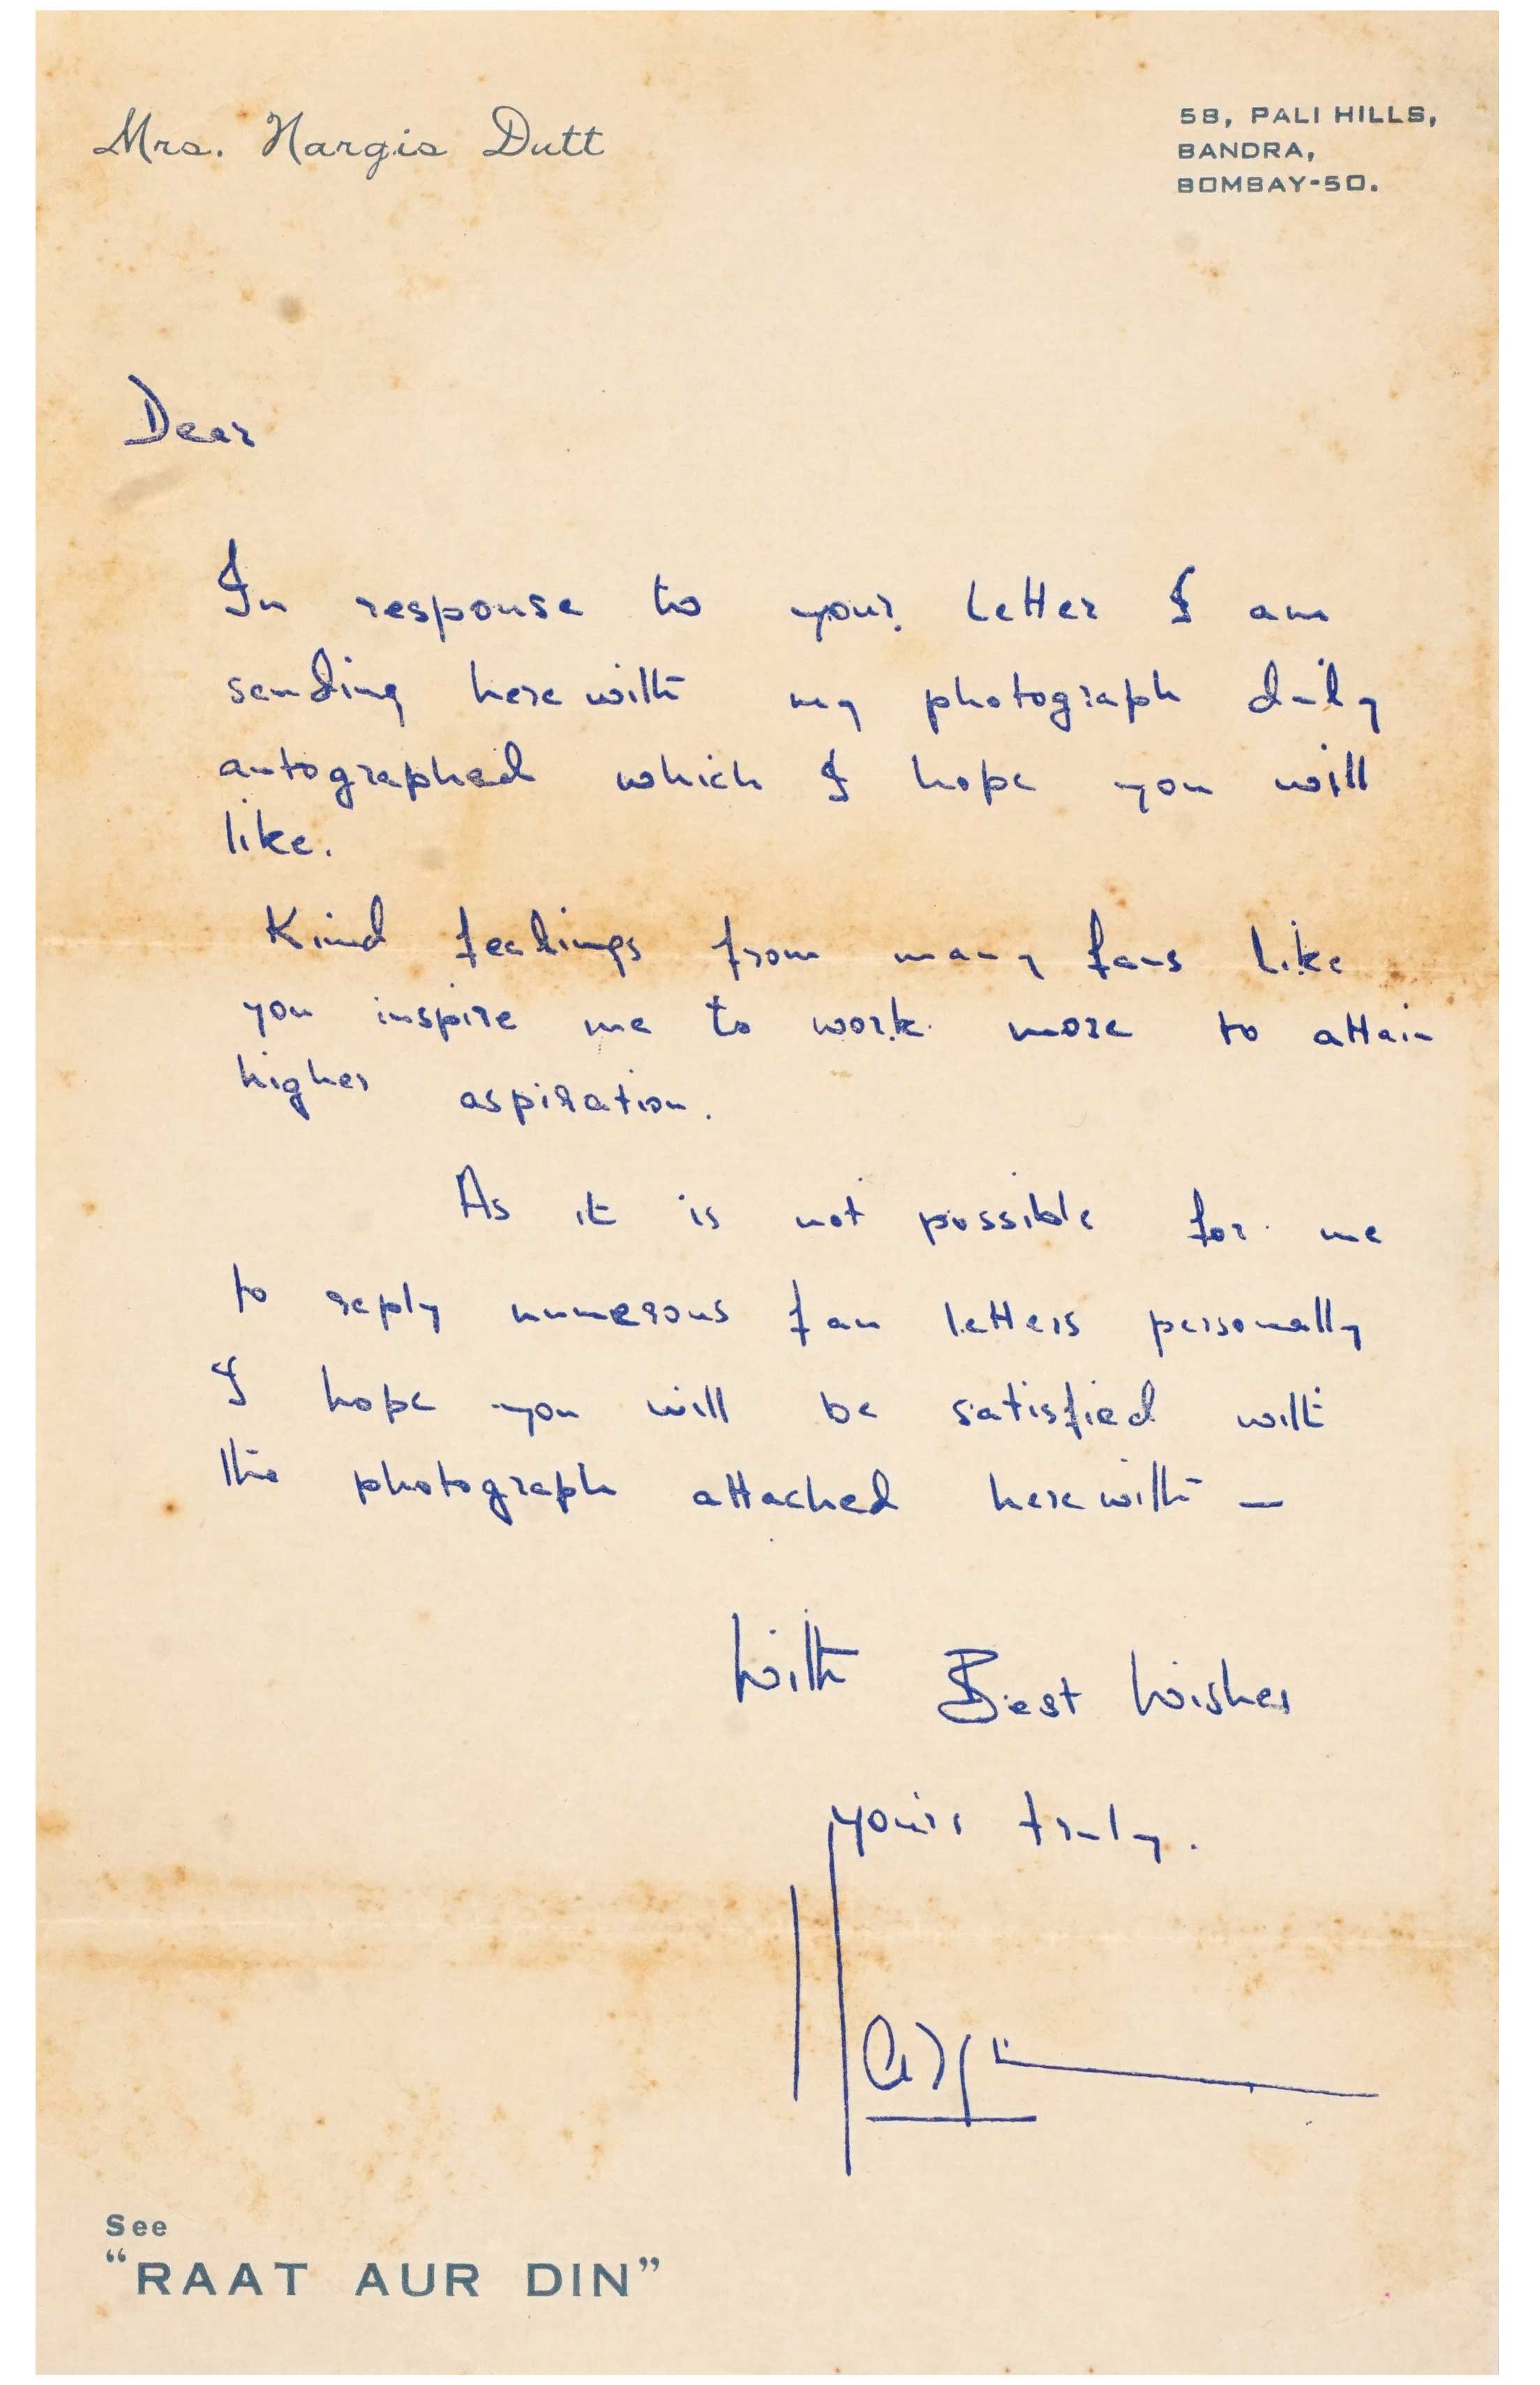 Mrs. Nargis Dutt
58, PALI HILLS,
BANDRA,
BOMBAY-50.
Dear
In response to your letter I am
sending herewith my photograph duly
autographed which I hope you will
like.
Kind feelings from many fans like
you inspire me to work more to attain
higher aspiration.
As it is not possible for me
to reply numerous fan letters personally
I hope you will be satisfied with
the photograph attached herewith —
With Best Wishes
yours truly.
Nargis
See
"RAAT AUR DIN"